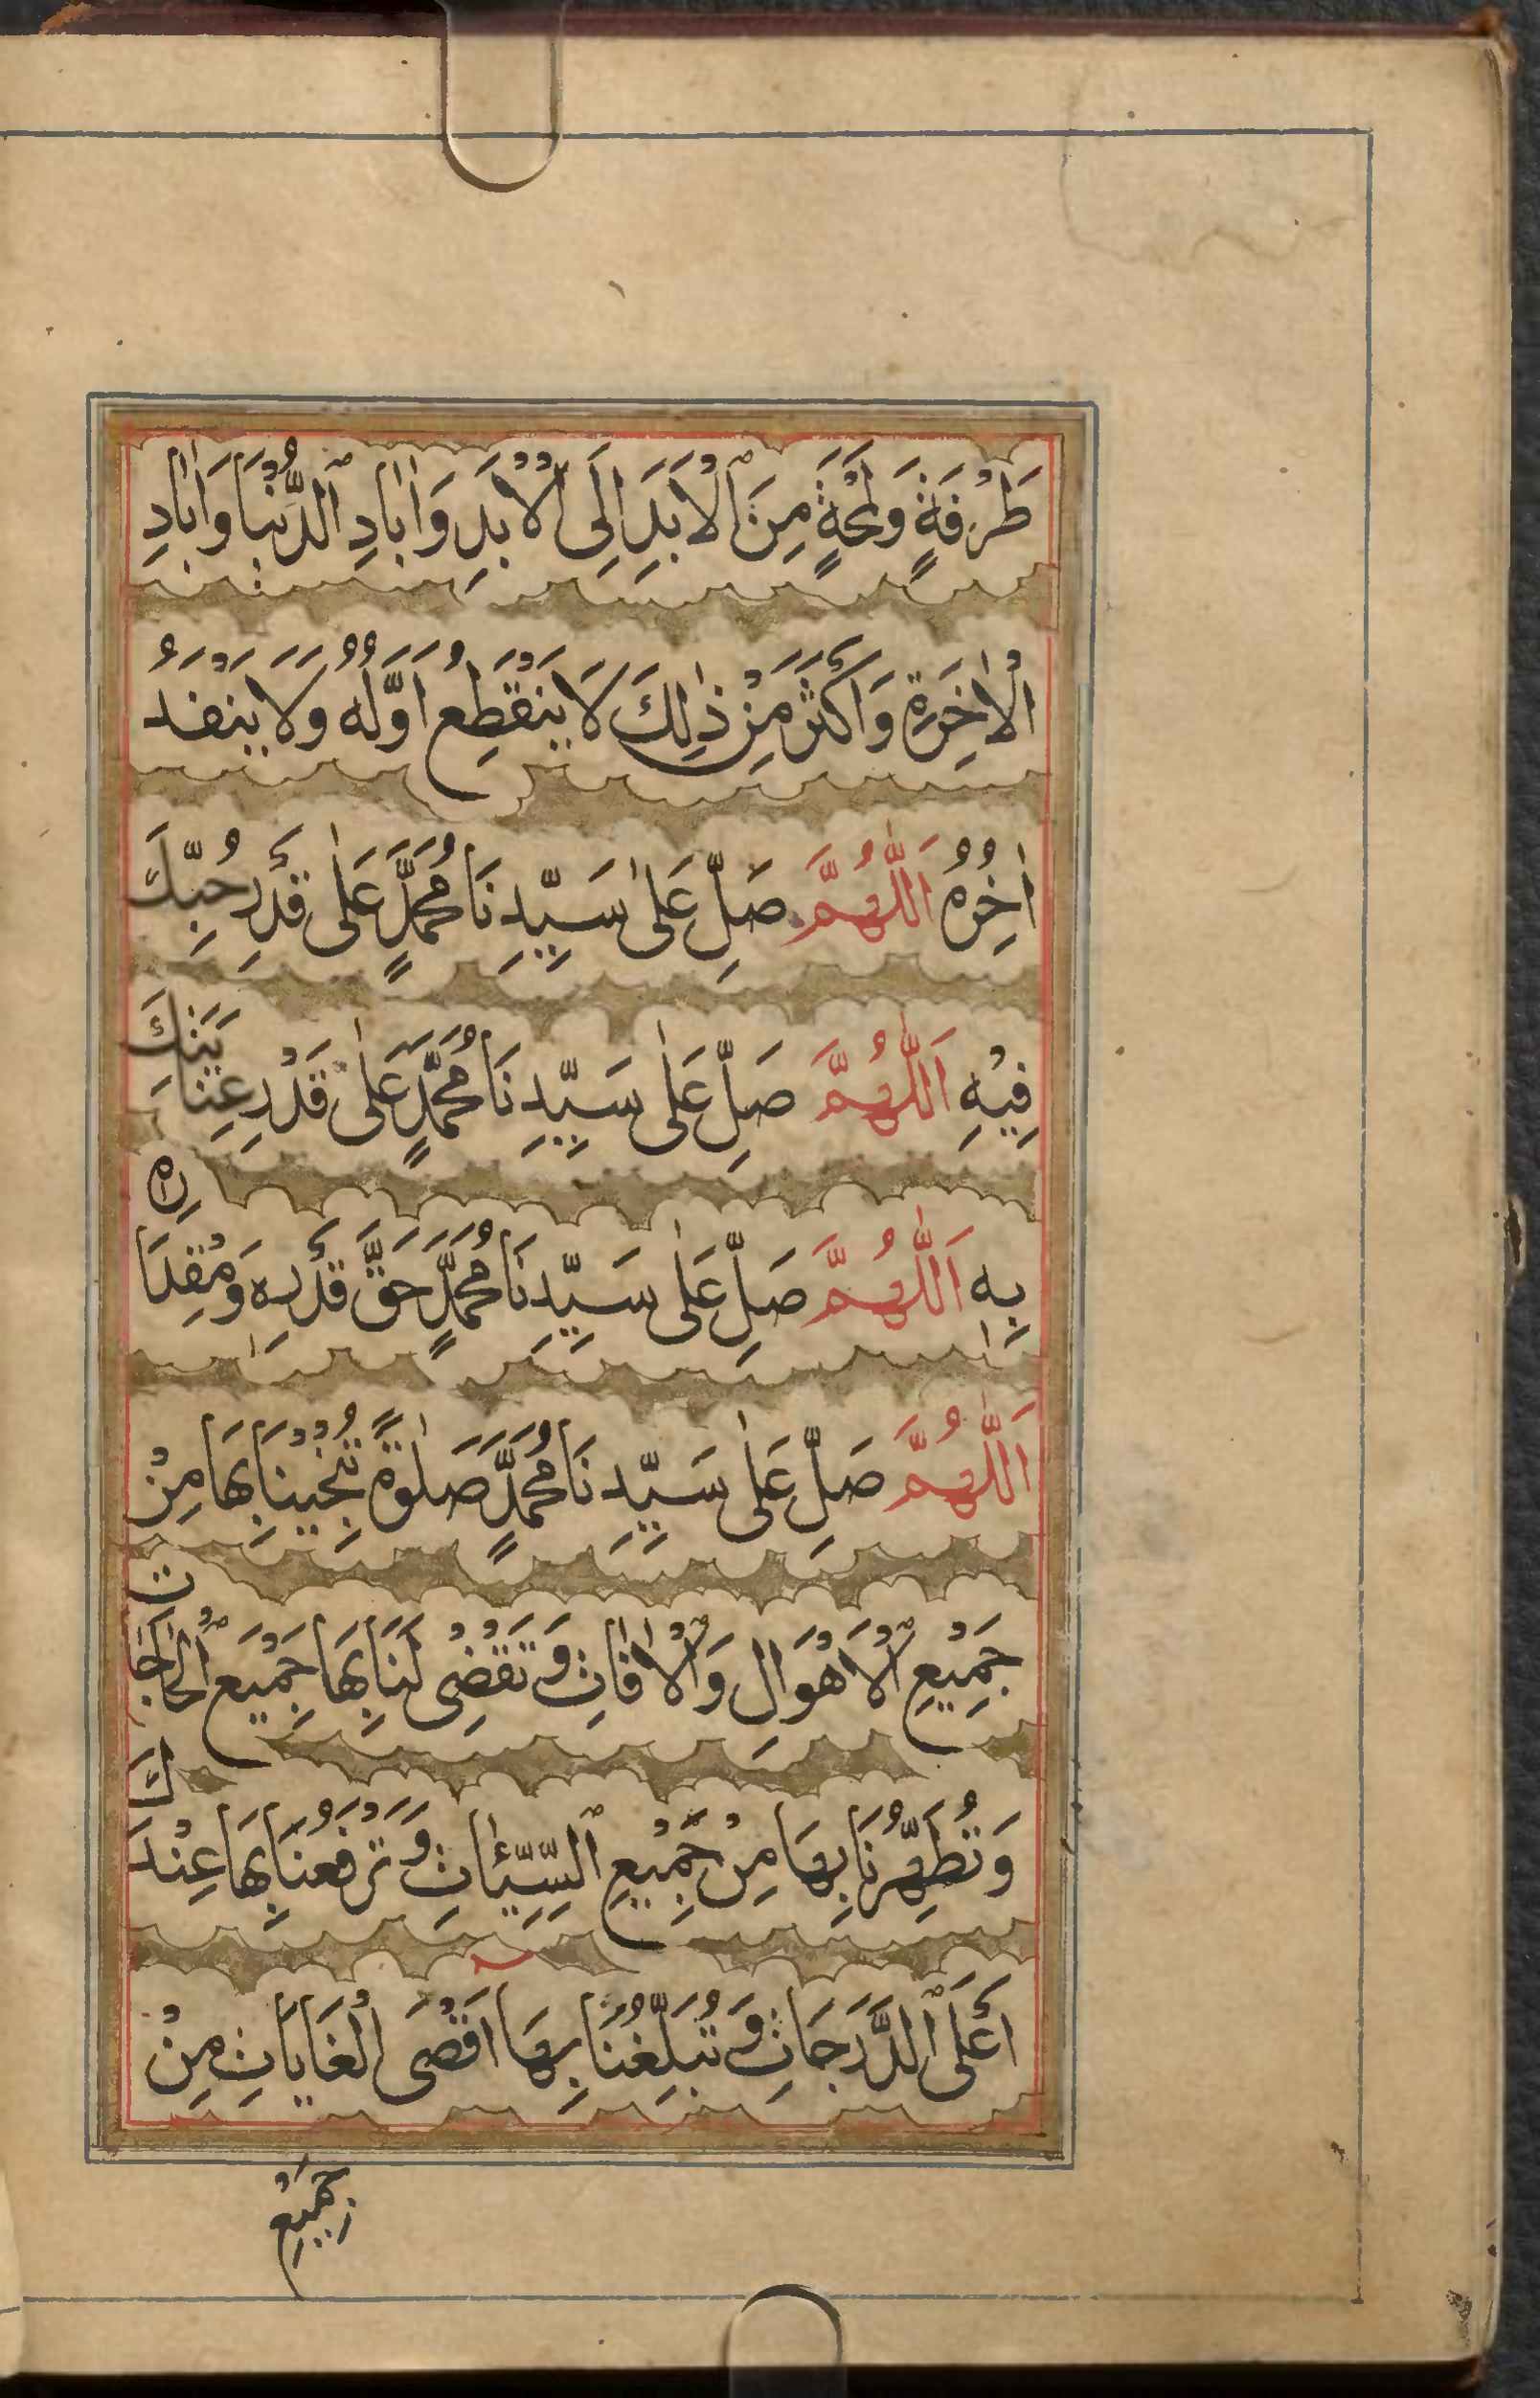 طَرْفَةٍ وَلَمْحَةٍ مِنَ ٱلْاَبَدِ اِلَى الْاَبَدِ وَاٰبَادِ ٱلدُّنْيَا وَاٰبَادِ
الْاٰخِرَةِ وَاَكْثَرَ مِنْ ذٰلِكَ لَا يَنْقَطِعُ اَوَّلُهُ وَلَا يَنْفَدُ
اٰخِرُهُ اَللّٰهُمَّ صَلِّ عَلٰى سَيِّدِنَا مُحَمَّدٍ عَلٰى قَدْرِ حُبِّكَ
فِيْهِ اَللّٰهُمَّ صَلِّ عَلٰى سَيِّدِنَا مُحَمَّدٍ عَلٰى قَدْرِ عِنَايَتِكَ
بِهٖ اَللّٰهُمَّ صَلِّ عَلٰى سَيِّدِنَا مُحَمَّدٍ حَقَّ قَدْرِهٖ وَمِقْدَارِهٖ
اَللّٰهُمَّ صَلِّ عَلٰى سَيِّدِنَا مُحَمَّدٍ صَلٰوةً تُنْجِيْنَا بِهَا مِنْ
جَمِيْعِ ٱلْاَهْوَالِ وَٱلْاٰفَاتِ وَتَقْضِىْ لَنَا بِهَا جَمِيْعَ ٱلْحَاجَاتِ
وَتُطَهِّرُنَا بِهَا مِنْ جَمِيْعِ ٱلسَّيِّئَاتِ وَتَرْفَعُنَا بِهَا عِنْدَكَ
اَعْلَى ٱلدَّرَجَاتِ وَتُبَلِّغُنَا بِهَا اَقْصَى الْغَايَاتِ مِنْ
جَمِيْعِ